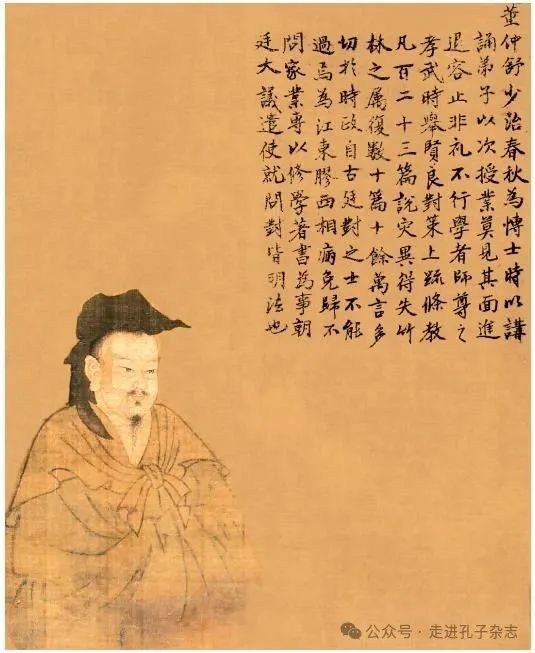 董仲舒少治春秋為博士時以講
誦弟子以次授業莫見其面進
退容止非礼不行學者師尊之
孝武時舉賢良對策上疏條教
凡百二十三篇說灾異得失竹
林之属復數十篇十餘萬言多
切於時政自古廷對之士不能
過焉為江東膠西相病免歸不
問家業專以修學著書為事朝
廷大議遣使就問對皆明法也
公众号·走进孔子杂志